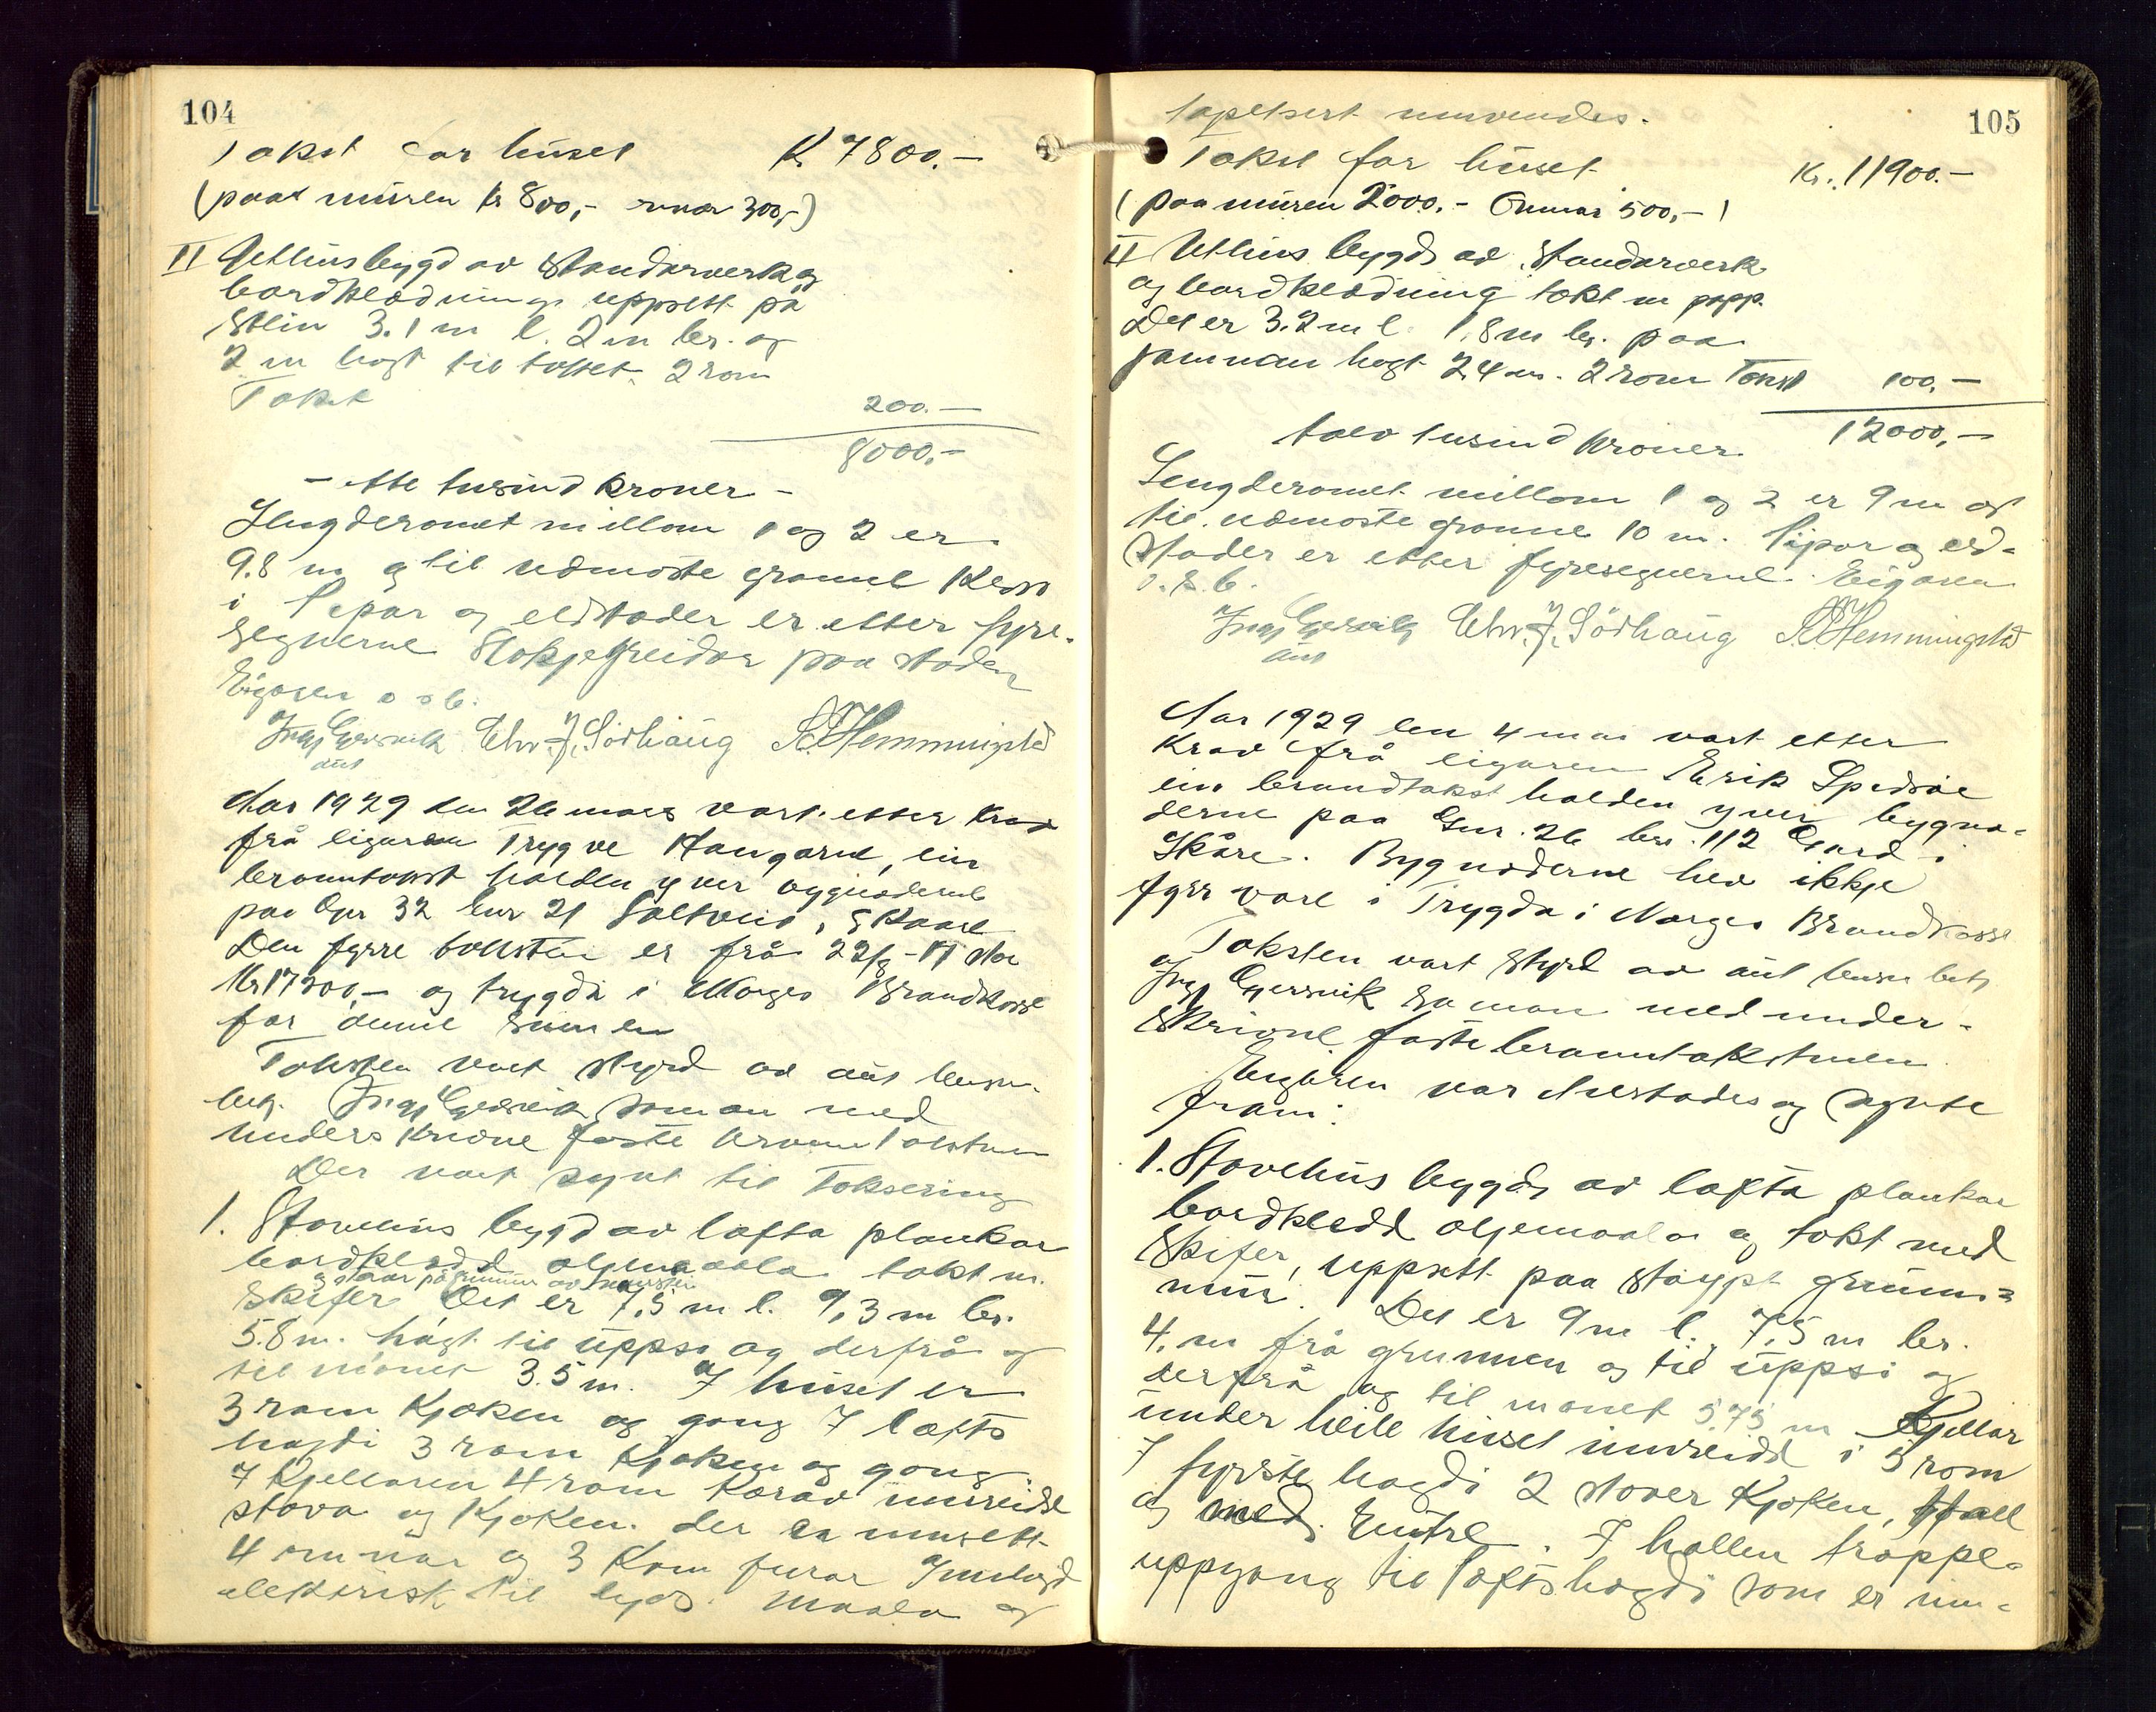 104
Takst for huset K 7800.-
(paal muren kr 800,- omnar 300,-)
II Uthus bygd av standarverk og
bordklædning uppsett på
Stein 3.1 m l. 2 m br. og
2 m høgt til toftet. 2 rom
Takst 200.-
8000,-
- otte tusind kroner -
Lengderomet millom 1 og 2 er
9.8 m og til næmoste granne
i Pipar og eldstader er etter fyre-
segnerne Slokjegreidor paa staden
Eigaren o s b.
Ingj Gjersvik Chr. J. Sörhaug S. Hemmingstad
aut
Aar 1929 den 26 mars vart etter krav
frå eigaren Trygve Haugarne, ein
branntakst halden yver bygnaderne
paa Gnr 32 bnr 21 Saltveid, Skaare
Den fyrre taksten er frå 22/8-17 stor
Kr 17200,- og trygda i Norges Brandkasse
for denne summen
Taksten vart styrd av aut lensm.
betj. Ingj Gjersvik saman med
underskrivne faste branntakstmenn
Der vart synt til Taksering
1. Stovehus bygd av lafta plankar
bordklædd oljemaala takt m.
og staar på grunnmur av murstein
Skifer Det er 7,5 m l. 9,3 m br.
5.8 m. høgt til uppsi og derfrå og
til mønet 3.5 m. I huset er
3 rom Kjøken og gong I lofts
høgdi 3 rom Kjøken og gong.
I Kjellaren 4 rom Korav innreidd
stova og Kjøken. der er innsett
4 omnar og 3 Komfurar Innlagd
elektrisk til lyos. Maala og
105
tapetsert innvendes.
Takst for huset Kr. 11900.-
(paa muren 2000.- Omnar 500,-)
II Uthus bygd av standarverk
og bordklædning tekt m papp.
Det er 3.2 m l. 1,8 m br. paa
jamnan høgt 2,4 m. 2 rom Takst 100.-
tolv tusind kroner 12000,-
Lengderomet millom 1 og 2 er 9 m og
til næmoste granne 10 m. Pipor og eld-
stader er etter fyresegnerne. Eigaren
o. s. b.
Ingj Gjersvik Chr. J. Sörhaug S. Hemmingstad
aut
Aar 1929 den 4 mai vart etter
Krav frå eigaren Erik Spedsöe
ein brandtakst halden yver bygna-
derne paa Gnr. 26 bnr. 112 Gard i
Skåre. Bygnaderne hev ikkje
fyrr vore i Trygda i Norges Brandkasse
Taksten vart styrd av aut lensm betj
Ingj Gjersvik saman med under-
skrivne faste branntakstmenn.
Eigaren var tilstades og synte
fram:
1. Stovehus bygd av lafta plankar
bordklædd oljemaala og tekt med
Skifer, uppsett paa støypt grunn-
mur. Det er 9 m l. 7,5 m br.
4, m frå grunnen og til uppsi og
derfrå og til mønet 5,75 m Kjellar
under heile huset innreidd i 3 rom
I fyrste høgdi 2 stover Kjøken, Hall
og med. Entre. I hallen trappe-
uppgong til loftshøgdi som er inn-